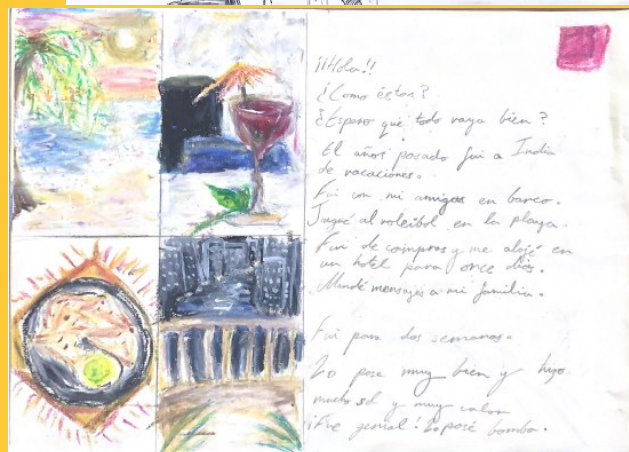 ¡¡Hola!!
¿Como éstas?
¿Espero que todo vaya bien?
El años pasado fui a India
de vacaciones.
Fui con mi amigas en barco.
Jugué al voleibol en la playa.
Fui de compras y me alojé en
un hotel para once días.
Mandé mensajes a mi familia.
Fui para dos semanas.
Lo pase muy bien y hizo
mucho sol y muy calor
¡Fue genial! Lo pasé bomba.